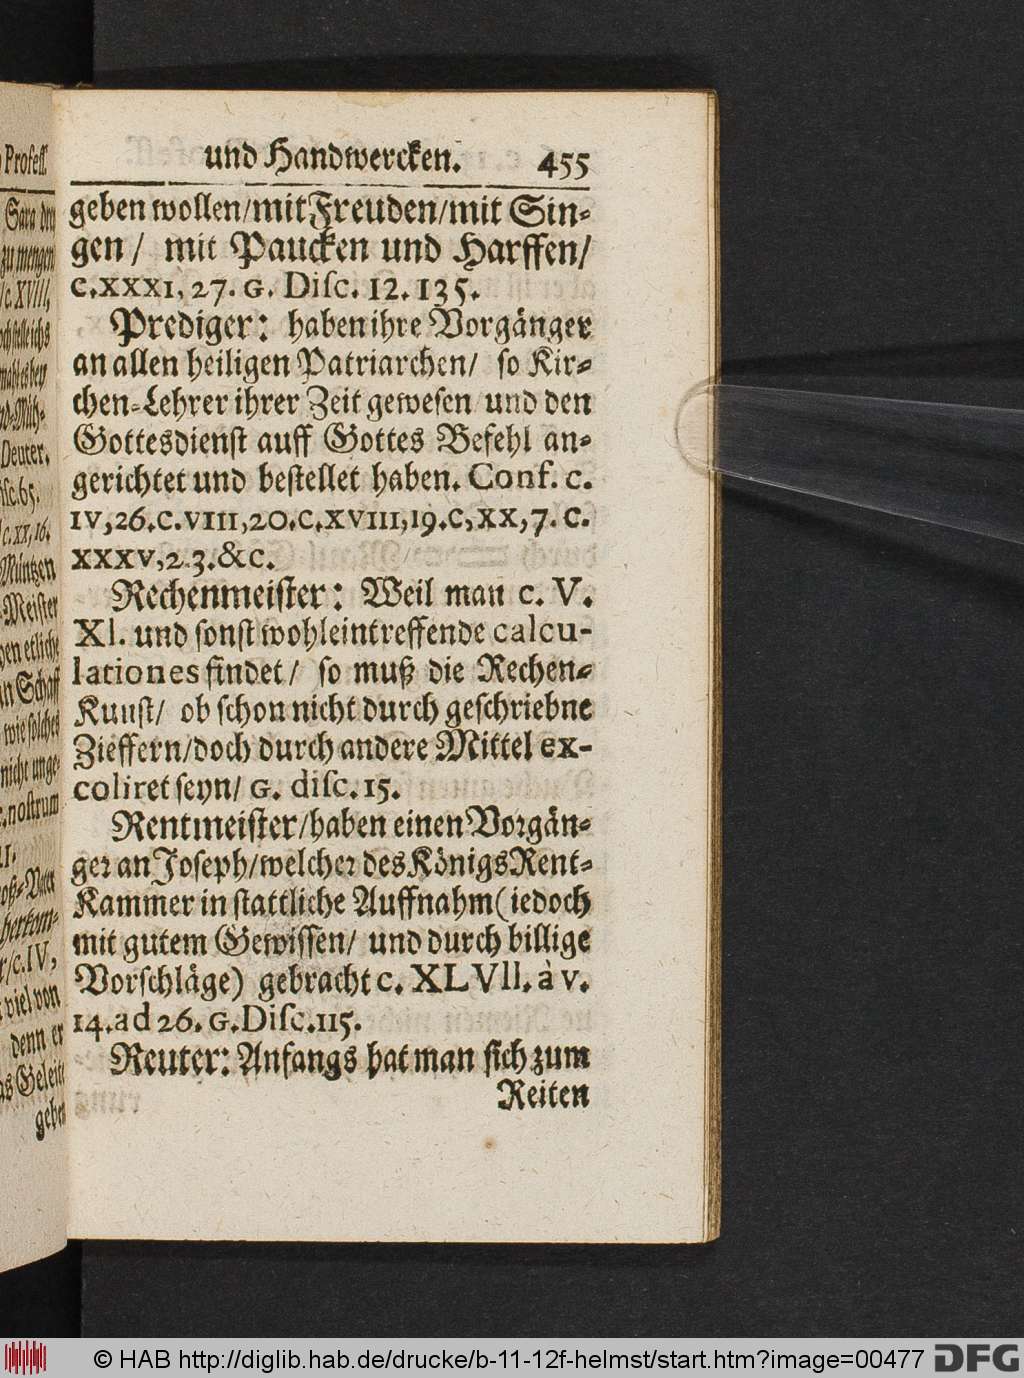 und Handwercken. 455
geben wollen/mit Freuden/mit Sin-
gen/ mit Paucken und Harffen/
c.XXXI, 27. G. Disc. 12. 135.
Prediger: haben ihre Vorgänger
an allen heiligen Patriarchen/ so Kir-
chen-Lehrer ihrer Zeit gewesen und den
Gottesdienst auff Gottes Befehl an-
gerichtet und bestellet haben. Conf. c.
IV,26.c.VIII,20.c.XVIII,19.c,XX,7. c.
XXXV,2.3.&c.
Rechenmeister: Weil man c. V.
XI. und sonst wohleintreffende calcu-
lationes findet/ so muß die Rechen-
Kunst/ ob schon nicht durch geschriebne
Zieffern/doch durch andere Mittel ex-
coliret seyn/ G. disc. 15.
Rentmeister/haben einen Vorgän-
ger an Joseph/welcher des Königs Rent-
Kammer in stattliche Auffnahm (iedoch
mit gutem Gewissen/ und durch billige
Vorschläge) gebracht c. XLVII. à v.
14.ad 26. G.Disc.115.
Reuter: Anfangs hat man sich zum
Reiten
Profess.
Sara
zu mengen
c.XVIII,
Deuter.
c.XX,16.
Müntzen
-Meister
etliche
Schaff
wie solches
nicht unge-
nostrum
c.IV,
viel von
denn er
Geleit
geben
© HAB http://diglib.hab.de/drucke/b-11-12f-helmst/start.htm?image=00477 DFG